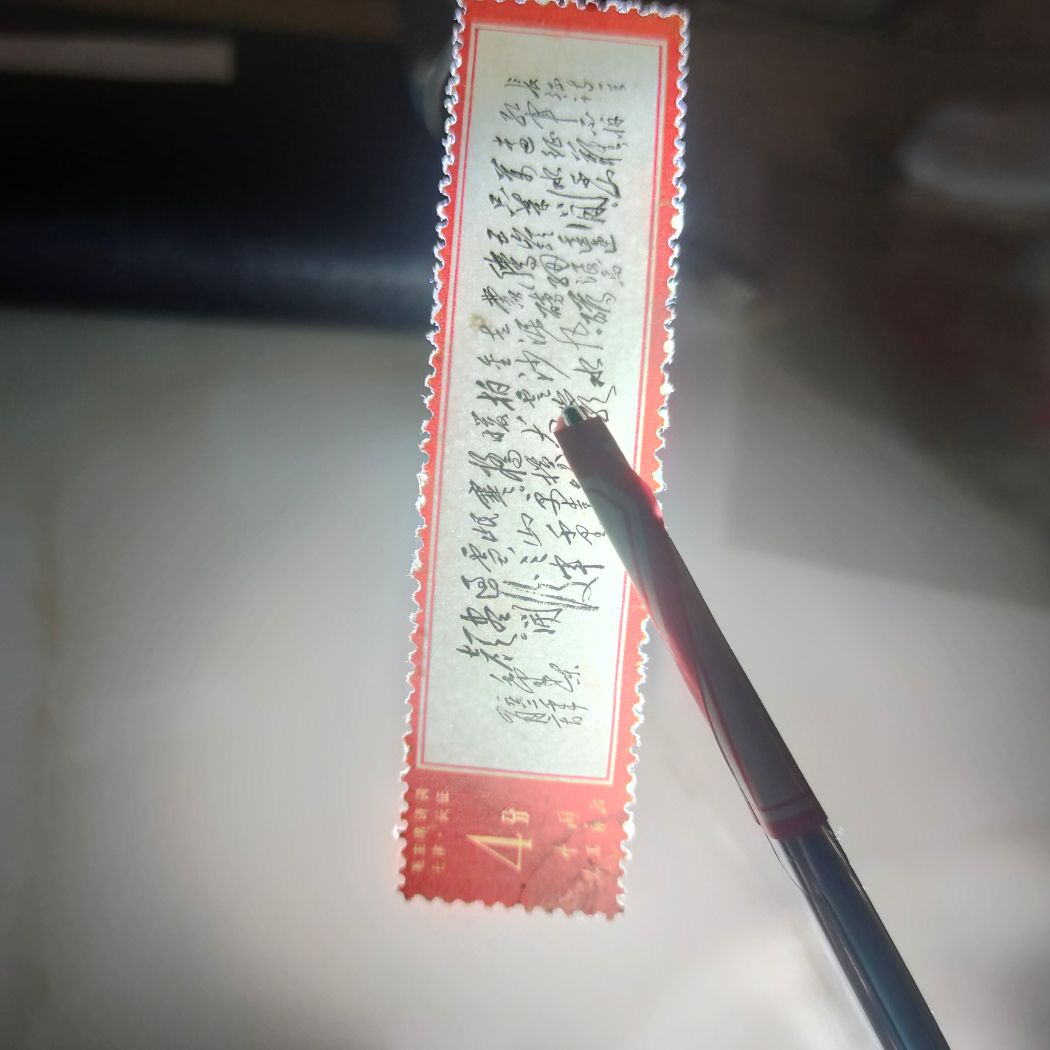 毛主席诗词
七律·长征
4分
中国
人民邮政
红军不怕远征难
万水千山只等闲
五岭逶迤腾细浪
乌蒙磅礴走泥丸
金沙水拍云崖暖
大渡桥横铁索寒
更喜岷山千里雪
三军过后尽开颜
毛泽东